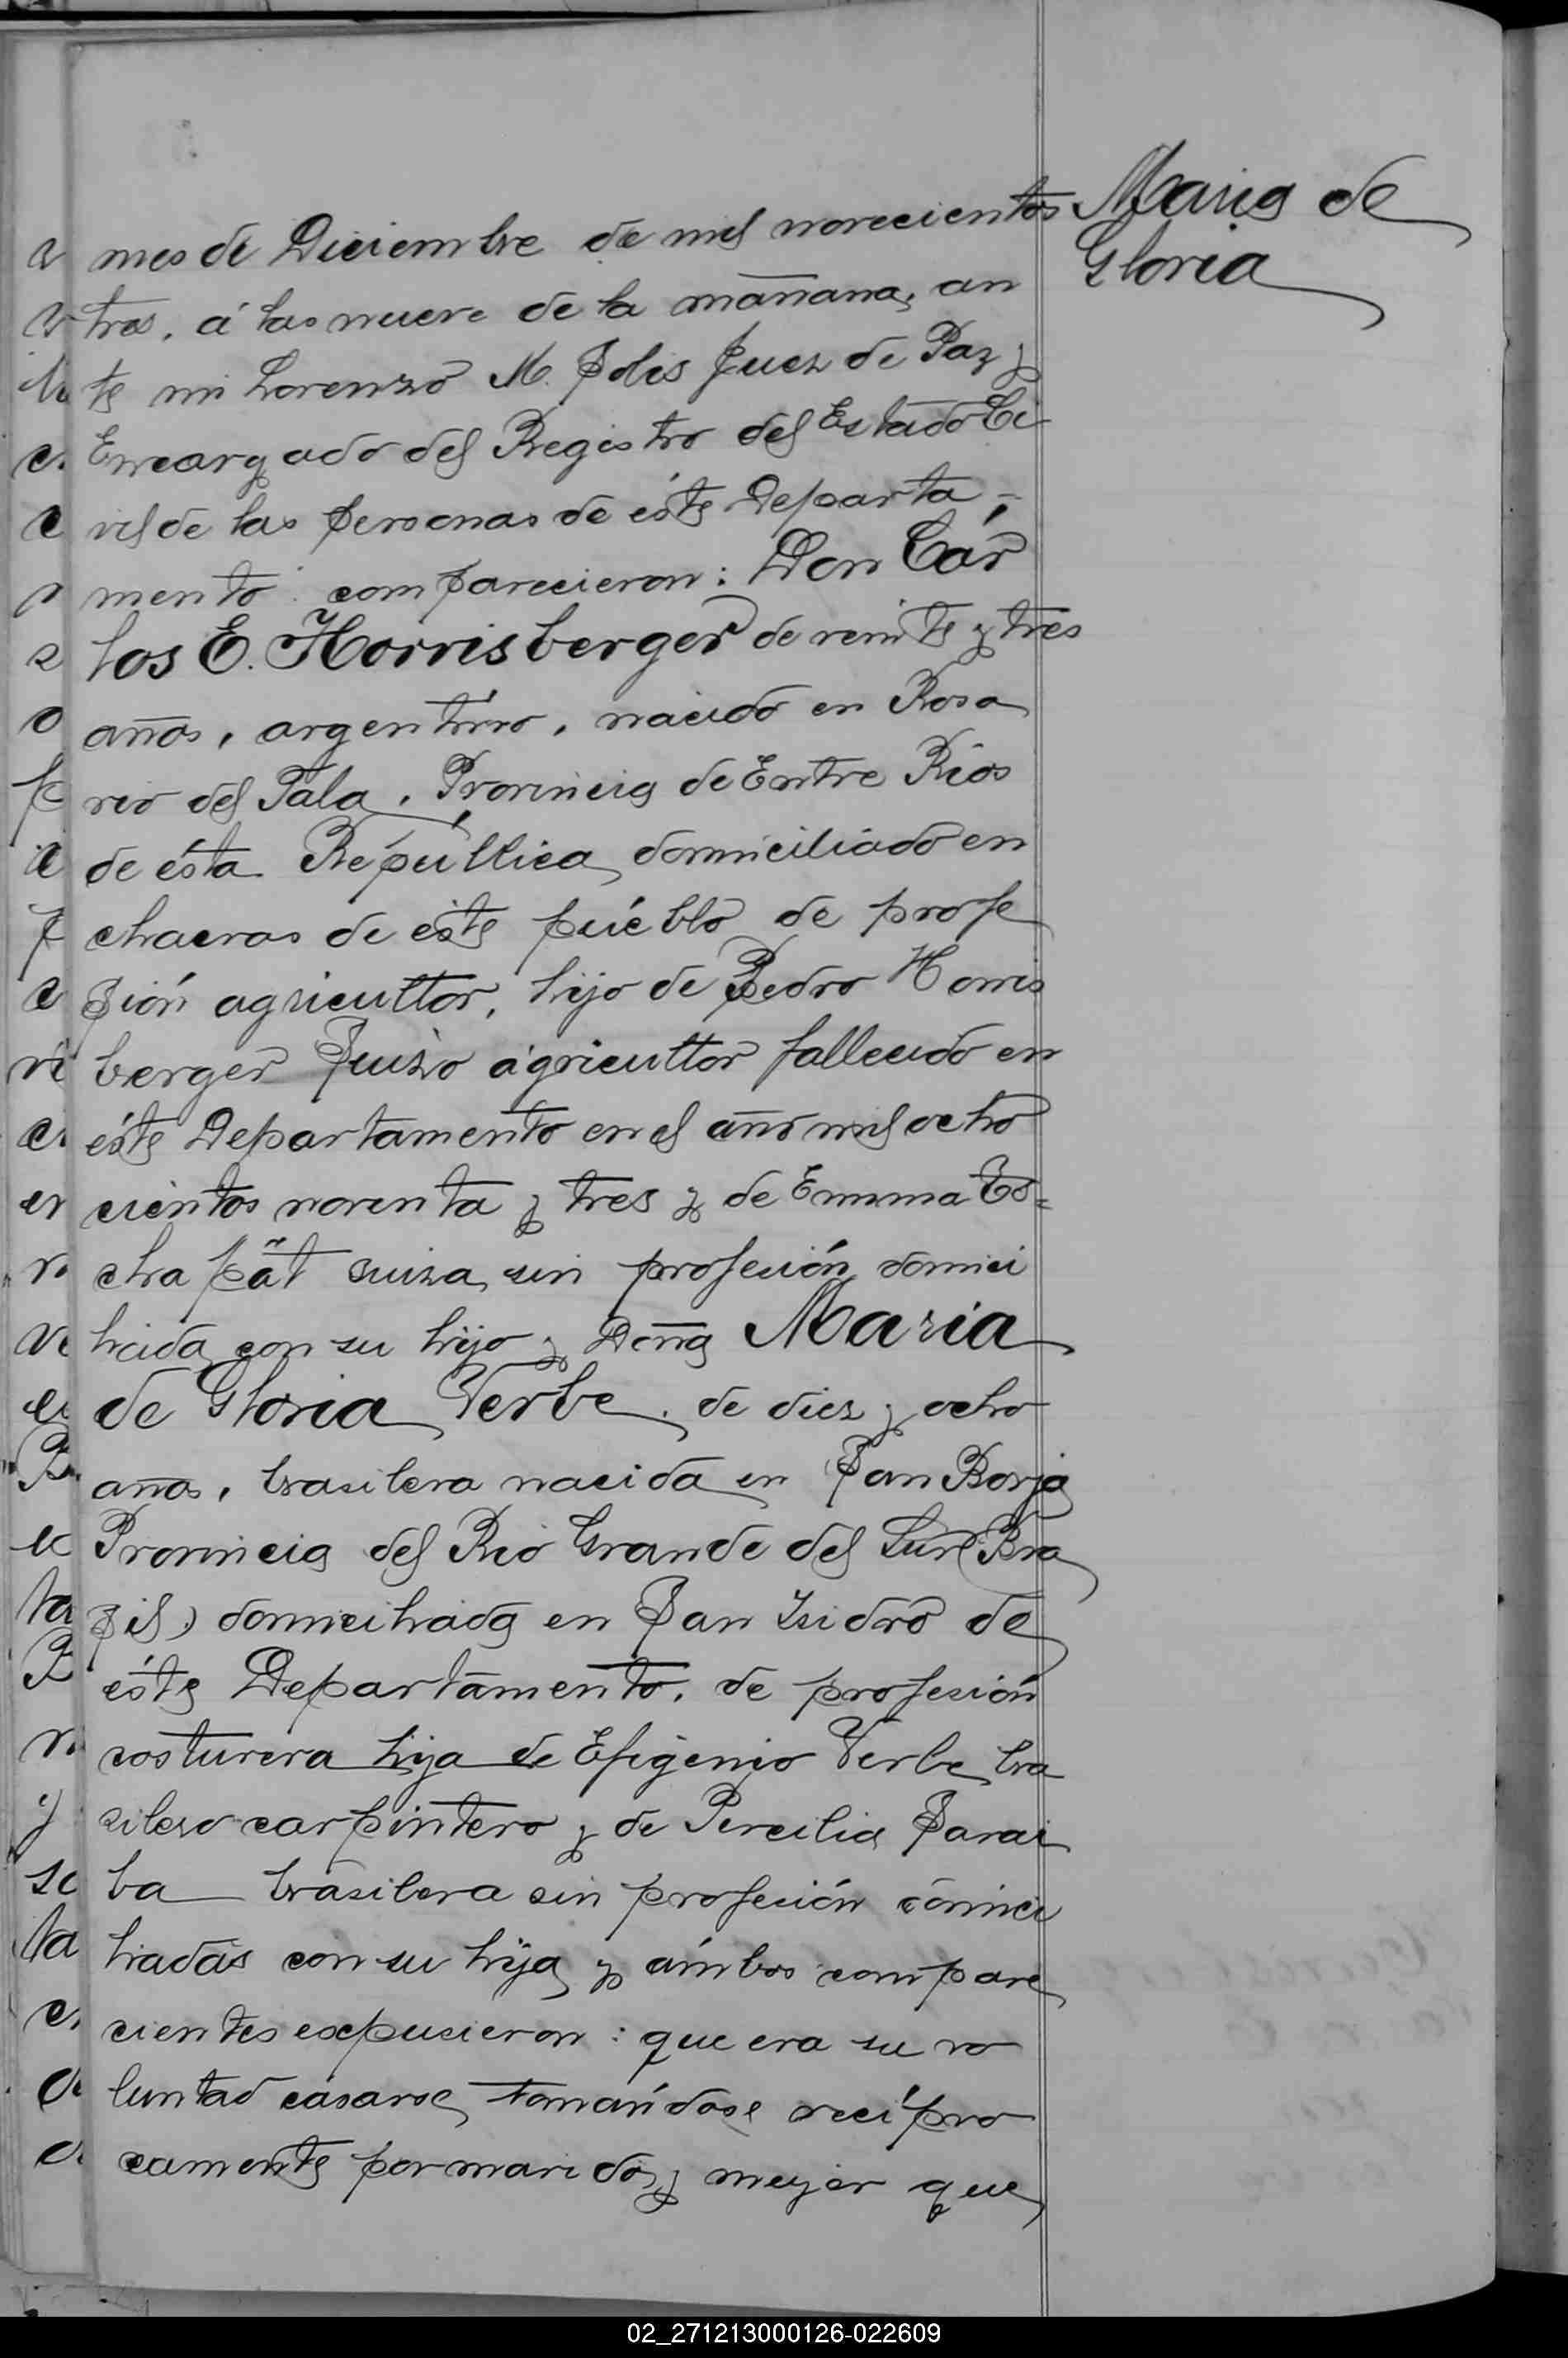 mes de Diciembre de mil novecientos
tres, á las nueve de la mañana, an
te mi Lorenzo M. Solis Juez de Paz y
Encargado del Registro del Estado Ci
vil de las personas de éste Departa-
mento comparecieron: Don Cár
los E. Horrisberger de veinte y tres
años, argentino, nacido en Rosa
rio del Tala, Provincia de Entre Rios
de ésta República, domiciliado en
chacras de éste pueblo de profe
sión agricultor, hijo de Pedro Horris
berger Suizo agricultor fallecido en
éste Departamento en el año mil ocho
cientos noventa y tres y de Emma
suiza, sin profesión domici
liada con su hijo y Doña María
de Gloria Verbe, de diez y ocho
años, brasilera nacida en San Borja
Provincia del Rio Grande del Sur (Bra
sil) domiciliada en San Isidro de
éste Departamento, de profesión
costurera hija de Efigenio Verbe bra
silero carpintero y de Percilia Sarai
ba brasilera sin profesión domici
liadas con su hija y ámbos compare
cientes expusieron: que era su vo
luntad casarse, tomándose recípro
camente por marido y mujer que
Maria de
Gloria
02_271213000126-022609